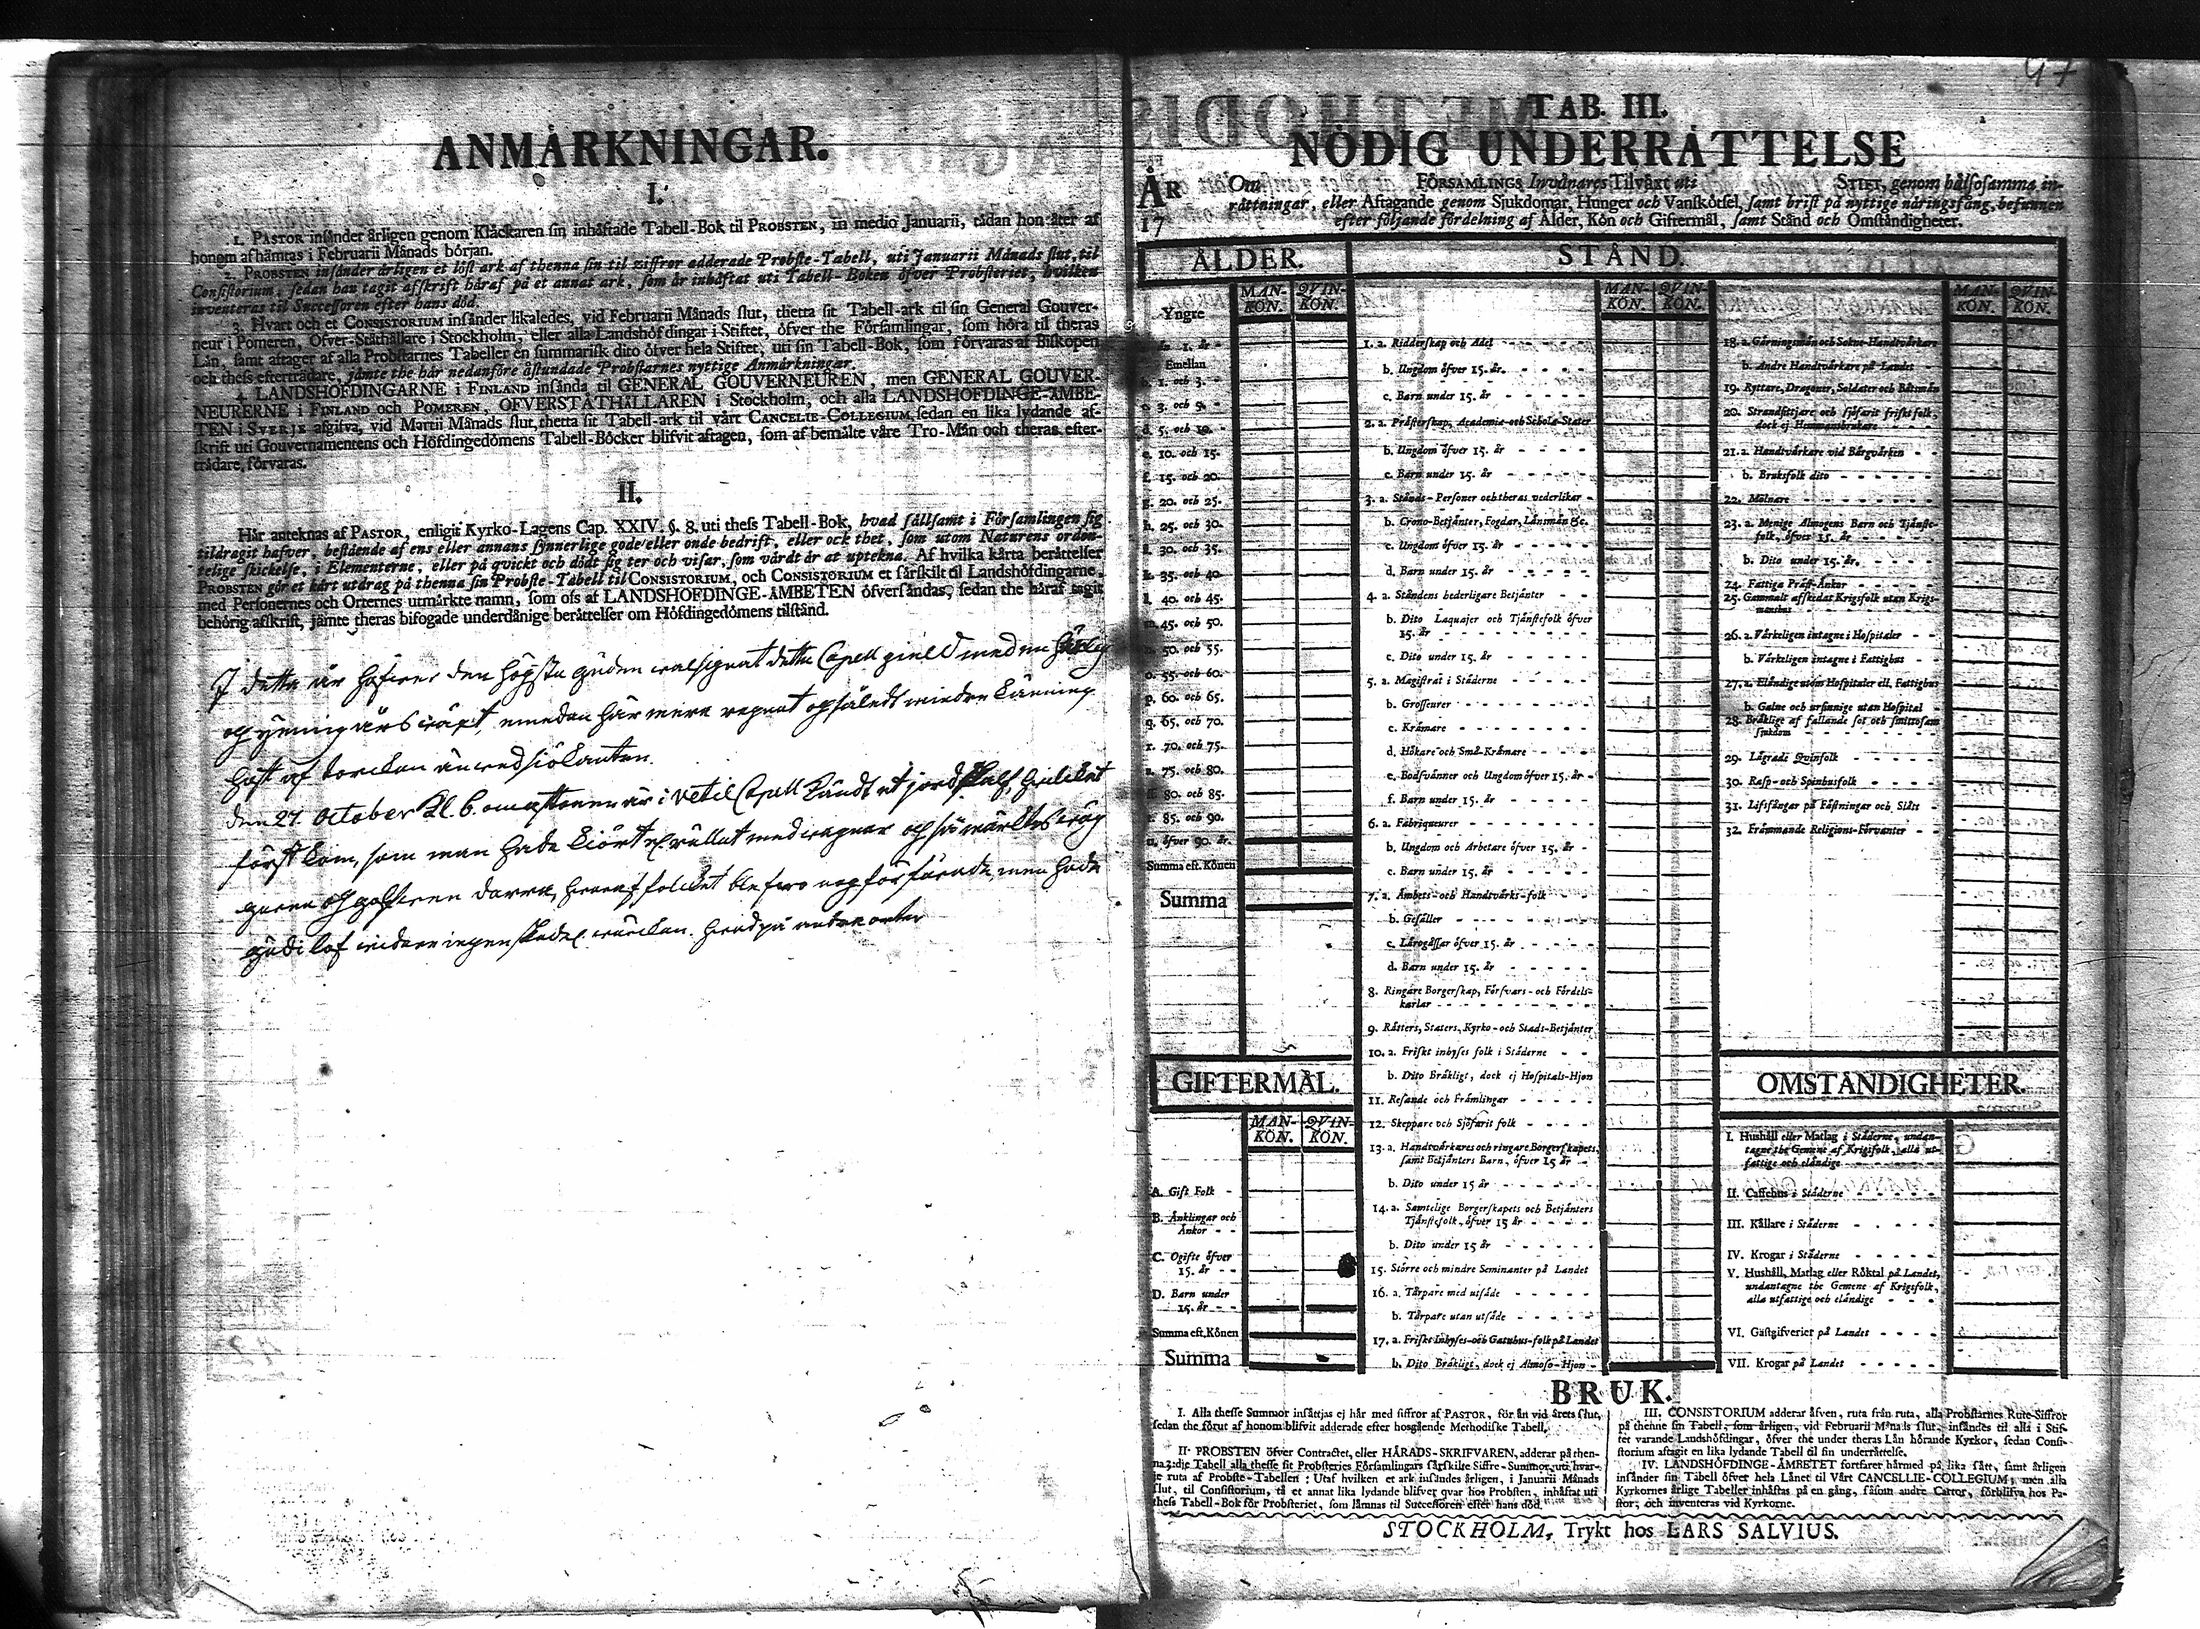 47
ANMÅRKNINGAR.
I.
1. PASTOR insånder årligen genom Klåckaren sin inhåftade Tabell-Bok til PROBSTEN, in medio Januarii, tådan hon åter af
honom afhåmtas i Februarii Månads början.
2. PROBSTEN insånder årligen et löst ark af thenna sin til ziffror adderade Probste-Tabell, uti Januarii Månads slut, til
Consistorium, sedan han tagit afskrift håraf på et annat ark, som år inhåftat uti Tabell-Boken öfver Probsteriet, hvilken
inventeras til Successoren efter hans död.
3. Hvart och et CONSISTORIUM insånder likaledes, vid Februarii Månads slut, thetta sit Tabell-ark til sin General Gouver-
neur i Pomeren, Öfver-Ståthållare i Stockholm, eller alla Landshöfdingar i Stiftet, öfver the Församlingar, som höra til theras
Lån, samt aftager af alla Probstarnes Tabeller en summarisk dito öfver hela Stiftet, uti sin Tabell-Bok, som förvaras af Biskopen
och thess eftertrådare, jåmte the hår nedanföre åstundade Probstarnes nyttige Anmårkningar.
4. LANDSHÖFDINGARNE i FINLAND insånda til GENERAL GOUVERNEUREN, men GENERAL GOUVER-
NEURERNE i FINLAND och POMEREN, ÖFVERSTÅTHÅLLAREN i Stockholm, och alla LANDSHÖFDINGE-ÅMBE-
TEN i SVERJE afgifva, vid Martii Månads slut, thetta sit Tabell-ark til vårt CANCELIE-COLLEGIUM, sedan en lika lydande af-
skrift uti Gouvernamentens och Höfdingedömens Tabell-Böcker blifvit aftagen, som af bemålte våre Tro-Mån och theras efter-
trådare, förvaras.
II.
Hår anteknas af PASTOR, enligit Kyrko-Lagens Cap. XXIV. §. 8. uti thess Tabell-Bok, hvad sållsamt i Församlingen sig
tildragit hafver, bestående af ens eller annans synnerlige gode eller onde bedrift, eller ock thet, som utom Naturens orden-
telige skickelse, i Elementerne, eller på qvickt och dödt sig ter och visar, som vårdt år at uptekna. Af hvilka kårta beråttelser
PROBSTEN gör et kårt utdrag på thenna sin Probste-Tabell til CONSISTORIUM, och CONSISTORIUM et sårskilt til Landshöfdingarne,
med Personernes och Orternes utmårkte namn, som oss af LANDSHÖFDINGE-ÅMBETEN öfversåndas, sedan the håraf tagit
behörig afskrift, jåmte theras bifogade underdånige beråttelser om Höfdingedömens tilstånd.
I detta år hafwer den högsta guden walsignat detta Capell gield med en härlig
og ymnig årswäxt, emedan här mera regnat og såledt mindre känning
hafft af torckan än wed siökanten.
den 27. October Kl. 6. om afftonen är i Vetil Capell kändt et jordskalf, hwilcket
först kom, som man hade kiört &c rullat med wagnar og så märcktes wäg
garna og golfwen darra, hwaraf folcket blefwo nog förfärade, men hade
gudi lof widare ingen skada &c wärckan. hwad på andra orter
TAB. III.
NÖDIG UNDERRÅTTELSE
ÅR 17
Om FÖRSAMLINGS Invånares Tilvåxt uti STIFT, genom hålsosamma in-
råttningar, eller Aftagande genom Sjukdomar, Hunger och Vanskötsel, samt brist på nyttige näringsfång, befunnen
efter följande fördelning af Ålder, Kön och Giftermål, samt Stånd och Omståndigheter.
ÅLDER.
STÅND.
MAN-KÖN. QVIN-KÖN.
MAN-KÖN. QVIN-KÖN.
MAN-KÖN. QVIN-KÖN.
Yngre
1. år
Emellan
b. 1. och 3.
c. 3. och 5.
d. 5. och 10.
e. 10. och 15.
f. 15. och 20.
g. 20. och 25.
h. 25. och 30.
i. 30. och 35.
k. 35. och 40.
l. 40. och 45.
m. 45. och 50.
n. 50. och 55.
o. 55. och 60.
p. 60. och 65.
q. 65. och 70.
r. 70. och 75.
s. 75. och 80.
80. och 85.
t. 85. och 90.
u. öfver 90. år.
Summa eft. Könen
Summa
1. a. Ridderskap och Adel
b. Ungdom öfver 15. år.
c. Barn under 15. år
2. a. Pråsterskap, Academia-och Schola-Stater
b. Ungdom öfver 15. år
c. Barn under 15. år
3. a. Stånds-Personer och theras vederlikar
b. Crono-Betjånter, Fogdar, Lånsmån &c.
c. Ungdom öfver 15. år
d. Barn under 15. år
4. a. Ståndens hederligare Betjånter
b. Dito Laquajer och Tjånstefolk öfver
15. år
c. Dito under 15. år
5. a. Magistrat i Ståderne
b. Grosseurer
c. Kråmare
d. Hökare och Små-Kråmare
e. Bodsvånner och Ungdom öfver 15. år
f. Barn under 15. år
6. a. Fabriqueurer
b. Ungdom och Arbetare öfver 15. år
c. Barn under 15. år
7. a. Åmbets-och Handtvårks-folk
b. Gesåller
c. Lårogåssar öfver 15. år
d. Barn under 15. år
8. Ringare Borgerskap, Försvars-och Fördels-
karlar
9. Råtters, Staters, Kyrko-och Stads-Betjånter
10. a. Friskt inhyses folk i Ståderne
b. Dito Bråkligt, dock ej Hospitals-Hjon
11. Resande och Fråmlingar
12. Skeppare och Sjöfarit folk
13. a. Handtvårkares och ringare Borgerskapets,
samt Betjånters Barn, öfver 15 år
b. Dito under 15 år
14. a. Samtelige Borgerskapets och Betjånters
Tjånstefolk, öfver 15 år
b. Dito under 15 år
15. Större och mindre Seminanter på Landet
16. a. Tårpare med utsåde
b. Tårpare utan utsåde
17. a. Friskt Inhyses-och Gatuhus-folk på Landet
b. Dito Bråkligt, dock ej Almoso-Hjon
18. a. Gårningsmån och Sokne-Handtvårkare
b. Andre Handtvårkare på Landet
19. Ryttare, Dragoner, Soldater och Båtsmån
20. Strandsittjare och sjöfarit friskt folk,
dock ej Hemmansbrukare
21. a. Handtvårkare vid Bårgvårken
b. Bruksfolk dito
22. Mölnare
23. a. Menige Almogens Barn och Tjånste-
folk, öfver 15. år
b. Dito under 15. år.
24. Fattiga Pråst-Ånkor
25. Gammalt afskedat Krigsfolk utan Krigs-
manshus
26. a. Vårkeligen intagne i Hospitaler
b. Vårkeligen intagne i Fattighus
27. a. Elåndige utom Hospitaler ell. Fattighus
b. Galne och ursinnige utan Hospital
28. Bråklige af fallande sot och smittosam
sjukdom
29. Lågrade Qvinfolk
30. Rasp-och Spinhusfolk
31. Lifsfångar på Fåstningar och Slått
32. Fråmmande Religions-Förvanter
GIFTERMÅL.
MAN-KÖN. QVIN-KÖN.
A. Gift Folk
B. Ånklingar och
Ånkor
C. Ogifte öfver
15. år
D. Barn under
15. år
Summa eft. Könen
Summa
OMSTÅNDIGHETER.
I. Hushåll eller Matlag i Ståderne, undan-
tagne the Gemene af Krigsfolk, alla ut-
fattige och elåndige
II. Caffehus i Ståderne
III. Kållare i Ståderne
IV. Krogar i Ståderne
V. Hushåll, Matlag eller Röktal på Landet,
undantagne the Gemene af Krigsfolk,
alla utfattige och elåndige
VI. Gåstgifveriet på Landet
VII. Krogar på Landet
BRUK.
I. Alla thesse Summor insåttjas ej hår med siffror af PASTOR, för ån vid årets slut,
sedan the förut af honom blifvit adderade efter hosgående Methodiske Tabell.
II. PROBSTEN öfver Contractet, eller HÅRADS-SKRIFVAREN, adderar på then-
na 3:die Tabell alla thesse sit Probsteries Församlingars sårskilte Siffre-Summor, uti hvar-
je ruta af Probste-Tabellen: Utaf hvilken et ark insåndes årligen, i Januarii Månads
slut, til Consistorium, tå et annat lika lydande blifver qvar hos Probsten, inhåftat uti
thess Tabell-Bok för Probsteriet, som låmnas til Successoren efter hans död.
III. CONSISTORIUM adderar åfven, ruta från ruta, alla Probstarnes Rute-Siffror
på thenne sin Tabell, som årligen, vid Februarii Månads slut, insåndes til alla i Stif-
tet varande Landshöfdingar, öfver the under theras Lån hörande Kyrkor, sedan Consi-
storium aftagit en lika lydande Tabell til sin underråttelse.
IV. LANDSHÖFDINGE-ÅMBETET fortfarer hårmed på lika sått, samt årligen
insånder sin Tabell öfver hela Lånet til Vårt CANCELLIE-COLLEGIUM; men alla
Kyrkornes årlige Tabeller inhåftas på en gång, såsom andre Cartor, förblifva hos Pa-
stor, och inventeras vid Kyrkorne.
STOCKHOLM, Trykt hos LARS SALVIUS.